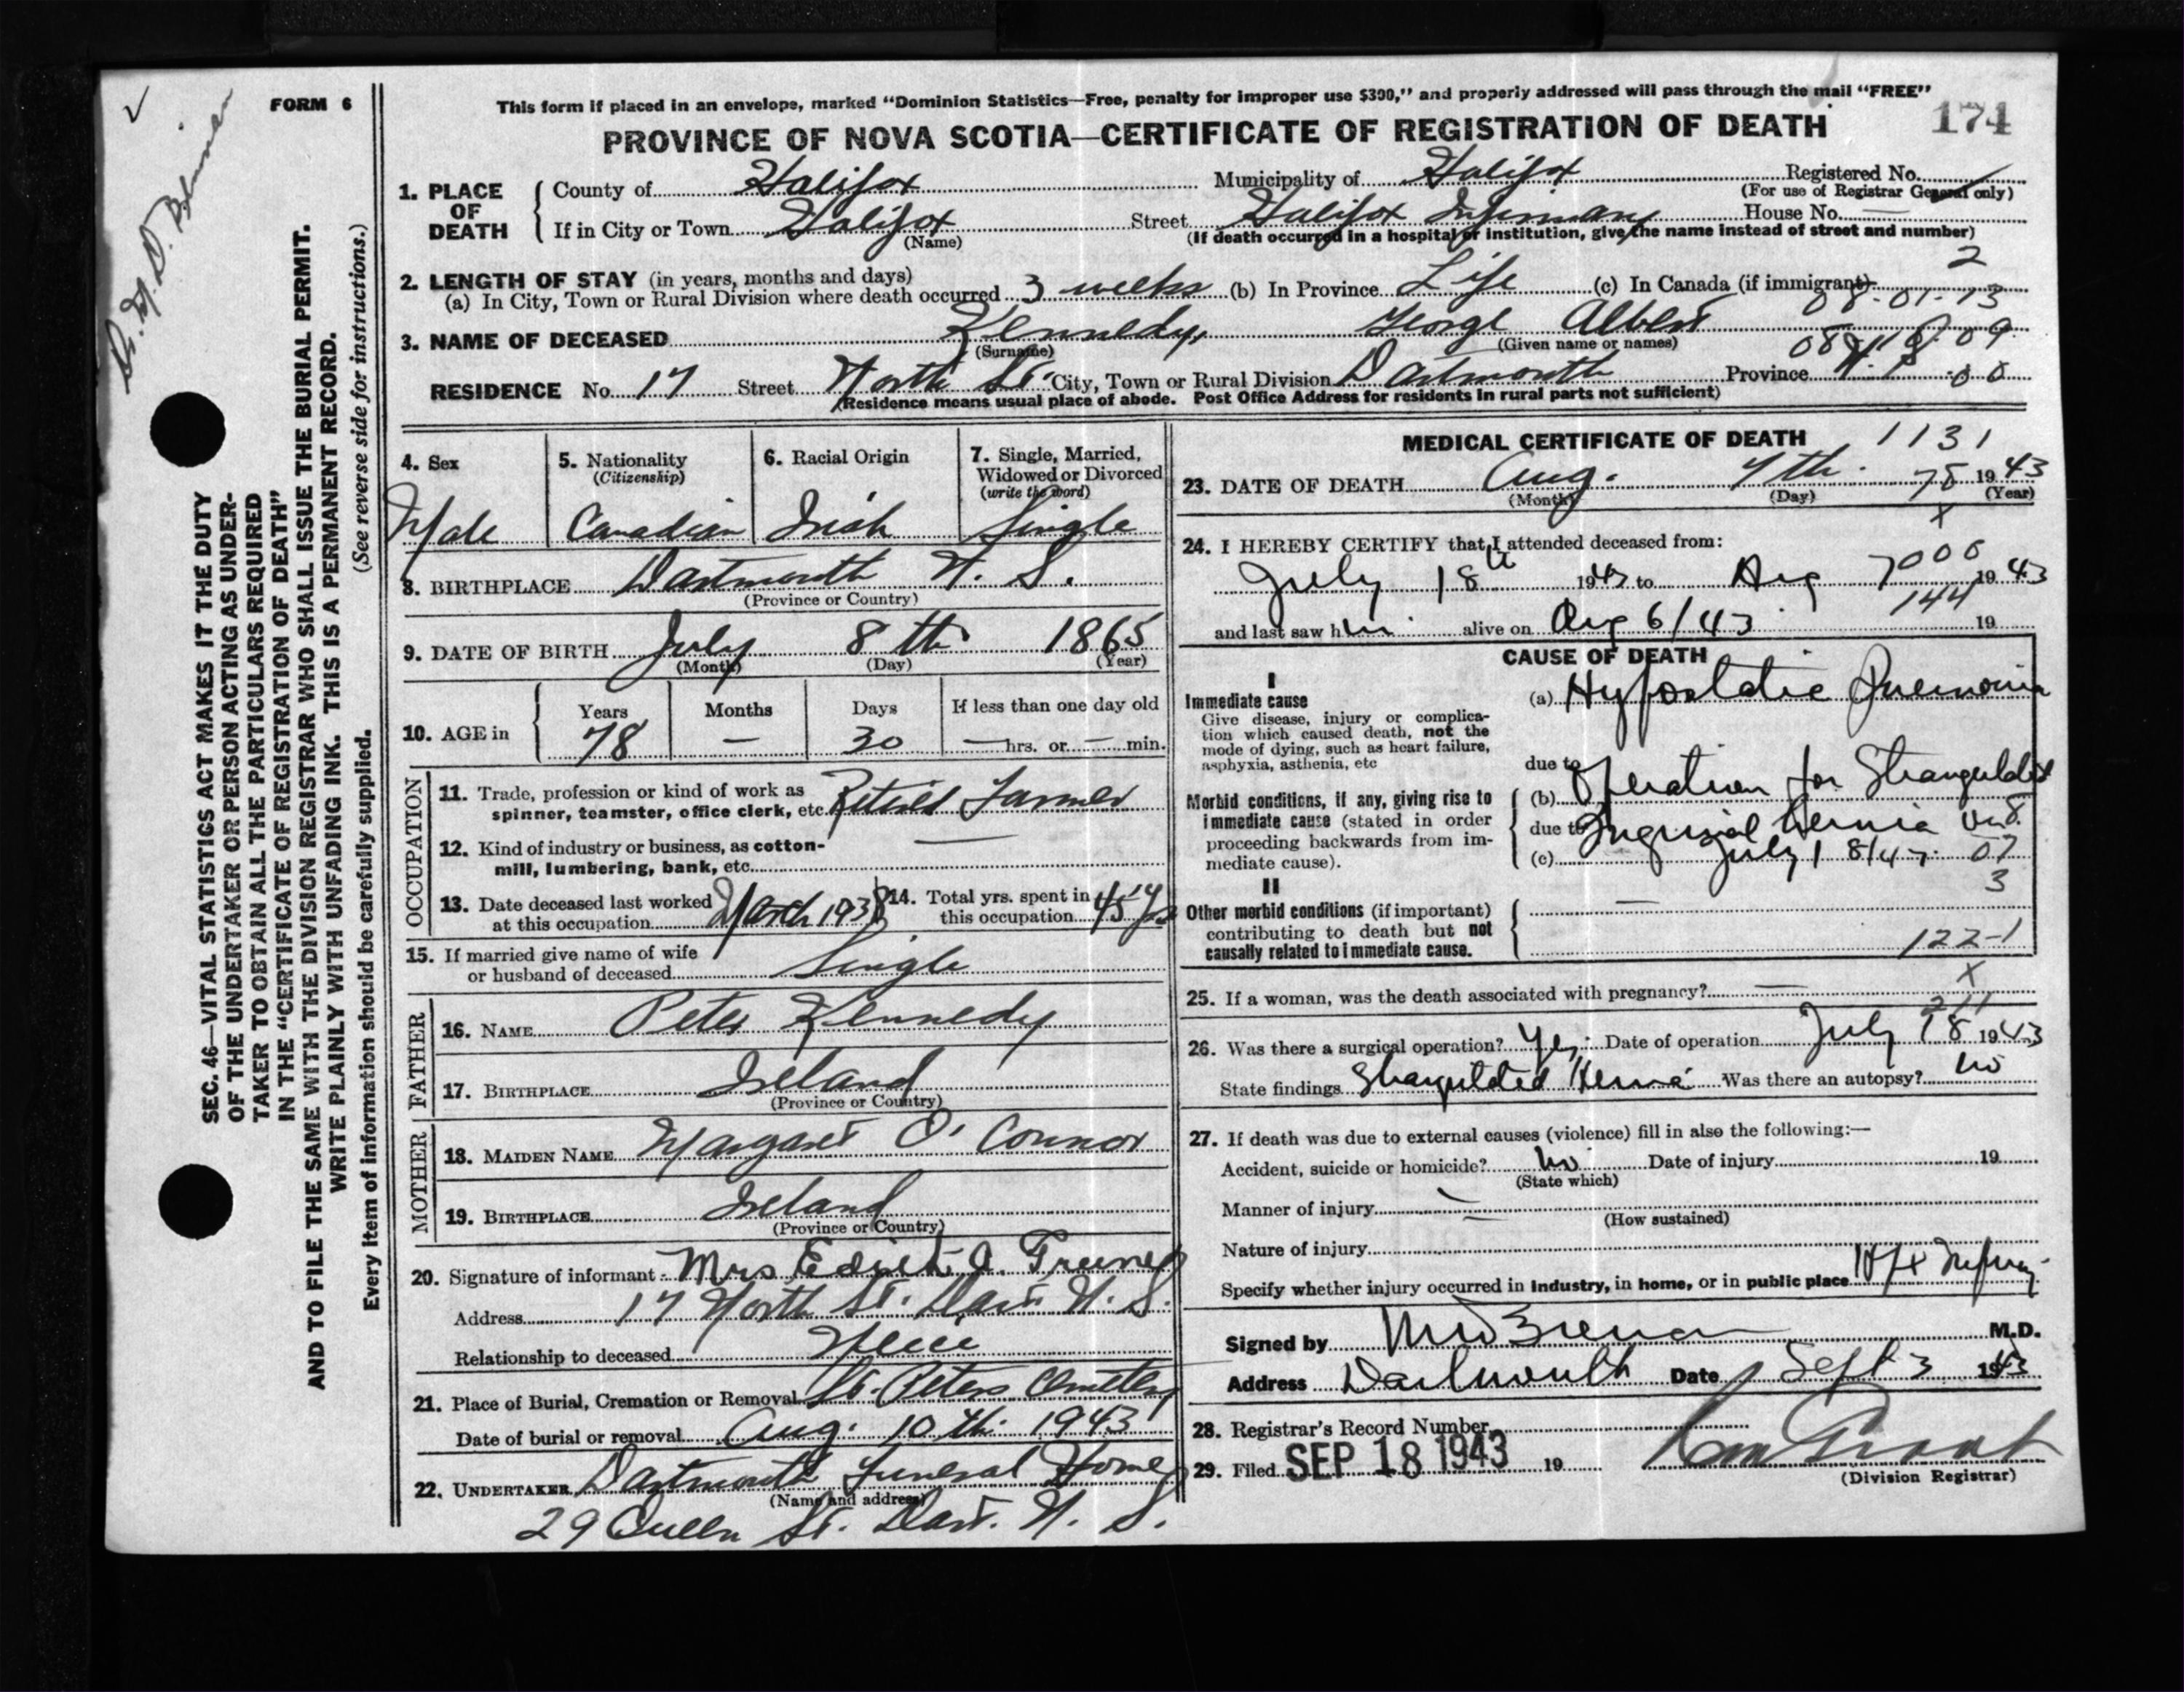 FORM 6
This form if placed in an envelope, marked “Dominion Statistics—Free, penalty for improper use $300,” and properly addressed will pass through the mail “FREE”
PROVINCE OF NOVA SCOTIA—CERTIFICATE OF REGISTRATION OF DEATH
174
1. PLACE OF DEATH
County of Halifax Municipality of Halifax Registered No.
(For use of Registrar General only)
If in City or Town Halifax Street Halifax Infirmary House No. —
(Name) (If death occurred in a hospital or institution, give the name instead of street and number)
2
2. LENGTH OF STAY (in years, months and days)
(a) In City, Town or Rural Division where death occurred 3 weeks (b) In Province Life (c) In Canada (if immigrant)
08-01-13
3. NAME OF DECEASED Kennedy, George Albert
(Surname) (Given name or names)
RESIDENCE No. 17 Street North St. City, Town or Rural Division Dartmouth Province N. S.
(Residence means usual place of abode. Post Office Address for residents in rural parts not sufficient)
4. Sex 5. Nationality 6. Racial Origin 7. Single, Married,
(Citizenship) Widowed or Divorced
(write the word)
Male Canadian Irish Single
8. BIRTHPLACE Dartmouth N. S.
(Province or Country)
9. DATE OF BIRTH July 8th 1865
(Month) (Day) (Year)
10. AGE in Years Months Days If less than one day old
78 — 30 — hrs. or — min.
OCCUPATION
11. Trade, profession or kind of work as
spinner, teamster, office clerk, etc. Retired Farmer
12. Kind of industry or business, as cotton-
mill, lumbering, bank, etc. —
13. Date deceased last worked
at this occupation March 1938
14. Total yrs. spent in
this occupation 45 yrs
15. If married give name of wife
or husband of deceased Single
FATHER
16. NAME Peter Kennedy
17. BIRTHPLACE Ireland
(Province or Country)
MOTHER
18. MAIDEN NAME Margaret O'Connor
19. BIRTHPLACE Ireland
(Province or Country)
20. Signature of informant Mrs Edith J.
Address 17 North St. Dart. N. S.
Relationship to deceased Niece
21. Place of Burial, Cremation or Removal St. Peters Cemetery
Date of burial or removal Aug. 10th 1943
22. UNDERTAKER Dartmouth Funeral Home
(Name and address)
29 Queen St. Dart. N. S.
MEDICAL CERTIFICATE OF DEATH 1131
23. DATE OF DEATH Aug. 7th. 78 1943
(Month) (Day) (Year)
x
24. I HEREBY CERTIFY that I attended deceased from:
July 18th 1943 to Aug 7 1943
144
and last saw him alive on Aug 6/43 19
CAUSE OF DEATH
I
Immediate cause
Give disease, injury or complica-
tion which caused death, not the
mode of dying, such as heart failure,
asphyxia, asthenia, etc
(a) Hypostatic Pneumonia
due to
Morbid conditions, if any, giving rise to
immediate cause (stated in order
proceeding backwards from im-
mediate cause).
(b) Operation for Strangulated
due to Inguinal Hernia on
(c) July 18/43 07
3
II
Other morbid conditions (if important)
contributing to death but not
causally related to immediate cause.
—
122-1
x
25. If a woman, was the death associated with pregnancy? —
211
26. Was there a surgical operation? Yes Date of operation July 18 1943
State findings Strangulated Hernia Was there an autopsy? no
27. If death was due to external causes (violence) fill in also the following:—
Accident, suicide or homicide? no Date of injury 19
(State which)
Manner of injury
(How sustained)
Nature of injury
Specify whether injury occurred in industry, in home, or in public place Hfx Infirmary
Signed by M.D.
Address Dartmouth Date Sept 3 1943
28. Registrar's Record Number
29. Filed SEP 18 1943 19
(Division Registrar)
SEC. 46—VITAL STATISTICS ACT MAKES IT THE DUTY
OF THE UNDERTAKER OR PERSON ACTING AS UNDER-
TAKER TO OBTAIN ALL THE PARTICULARS REQUIRED
IN THE “CERTIFICATE OF REGISTRATION OF DEATH”
AND TO FILE THE SAME WITH THE DIVISION REGISTRAR WHO SHALL ISSUE THE BURIAL PERMIT.
WRITE PLAINLY WITH UNFADING INK. THIS IS A PERMANENT RECORD.
Every item of information should be carefully supplied. (See reverse side for instructions.)